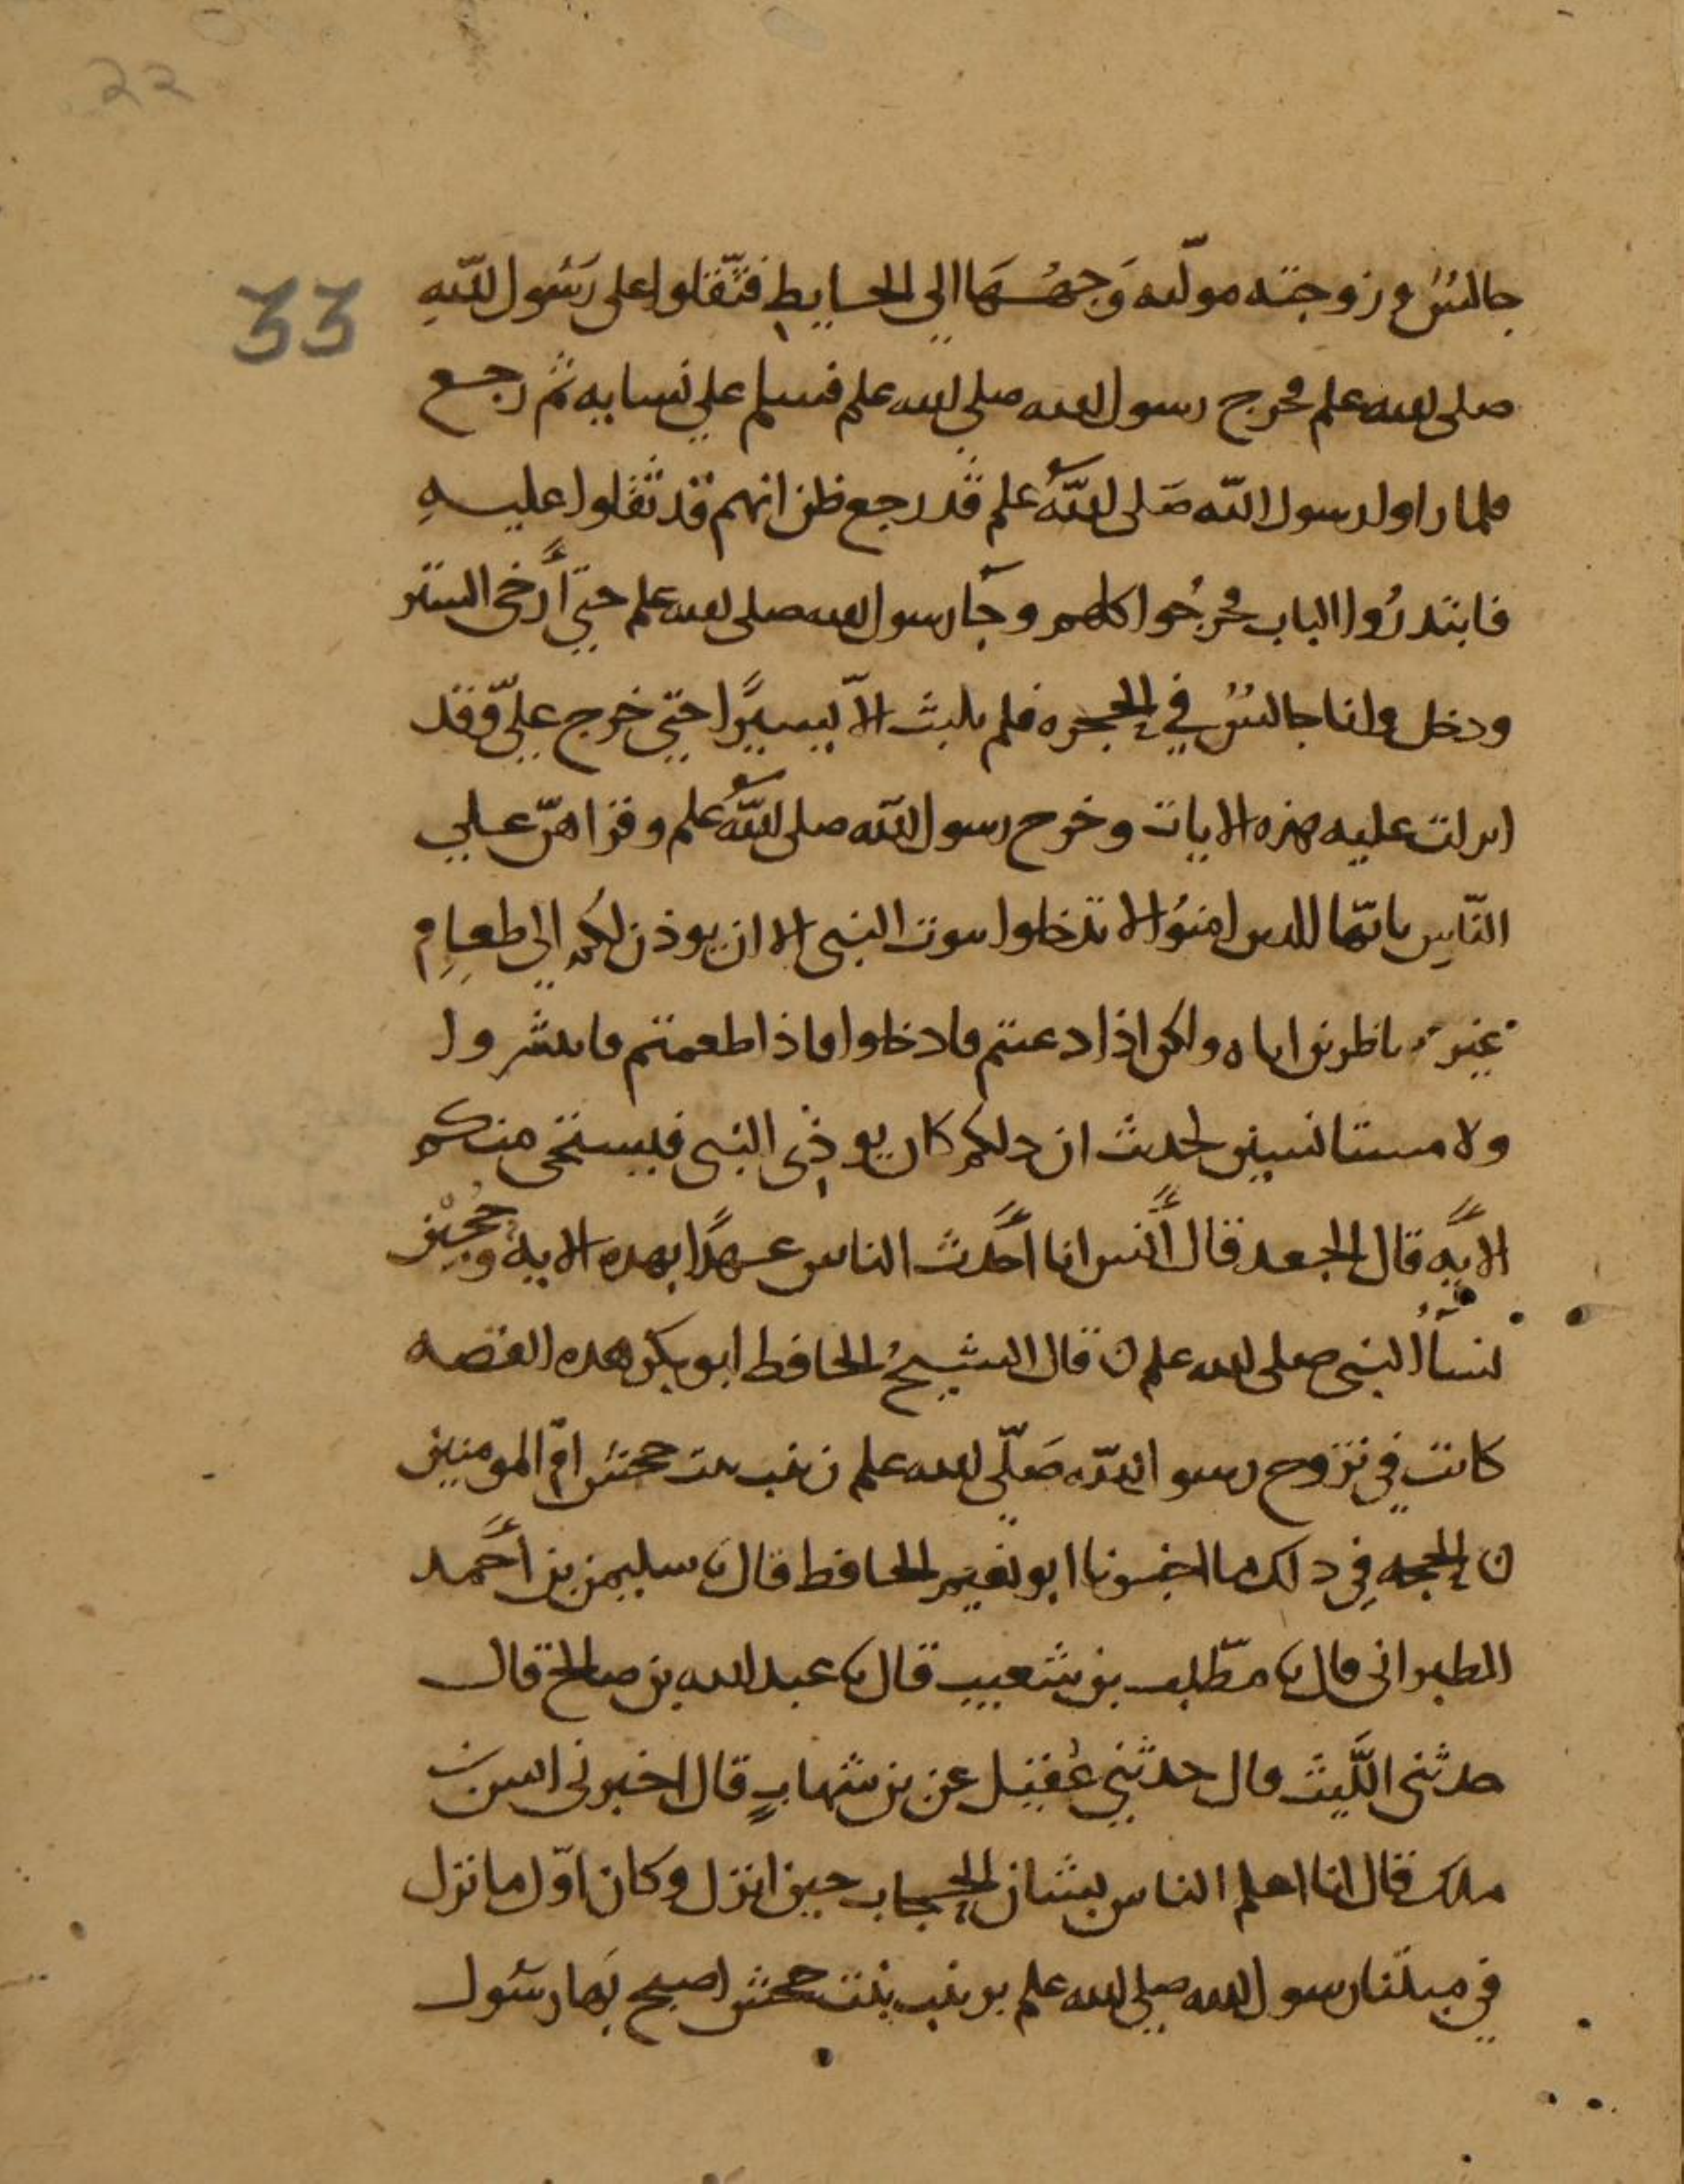 22
33
جالسٌ وزوجته مولّيه وَجهُهَا الي الحايطِ فثّقلوا على رَسُول اللّهِ
صلى الله علم فخرج رسول الله صلي الله علم فسلم علي نسايه ثم رجع
فلما راوا رسول اللّه صَلى اللّهُ علم قد رجع ظن انهم قد ثقّلوا عليهِ
فابتدرُوا الباب فخرجُوا كلهم وجَآ رسول الله صلى الله علم حتي أرخى الستر
ودخل وانا جالسٌ في الحجره فلم يلبث الّا يسيرًا حتي خرج عليّ وقد
انزلت عليه هذه الايات وخرج رسول اللّه صلى اللّهُ علم وقراهنّ علي
النّاسِ يايّها الذين امنوُا لا تدخلوا بيوت النبى الا ان يوذن لكُم الي طعامٍ
غير ناظرين اناه ولكن اذا دعيتم فادخلوا فاذا طعمتم فانتشروا
ولا مستانسين لحديث ان ذلكم كان يوذِى النبى فيستحى منكم
الايَه قال الجعد قال أَنس انا أَحَدث الناس عهدًا بهذه الايه وحُجِبْن
نسآُ النبى صلى الله علم ن قال الشيخُ الحافظ ابو بكر هذه القصه
كانت في تزوج رسو اللّه صَلّي الله علم زينب بنت جحش امّ المومنين
ن الحجه فِي ذلك ما اخبرنا ابو نعيم الحافظ قال نا سليمن بن أحَمد
الطبرانى قال نا مطّلب بن شعيب قال نا عبد الله بن صالح قال
حدثنى اللَّيث قال حدثَني عُقَيل عن بن شهابٍ قال اخبرنى انس بن
ملك قال انا اعلم الناس بشان الحجاب حين انزل وكان اوّل ما نزل
في مبتنا رسول الله صلي الله علم بزينب بنت جحش اصبح بَها رسُول